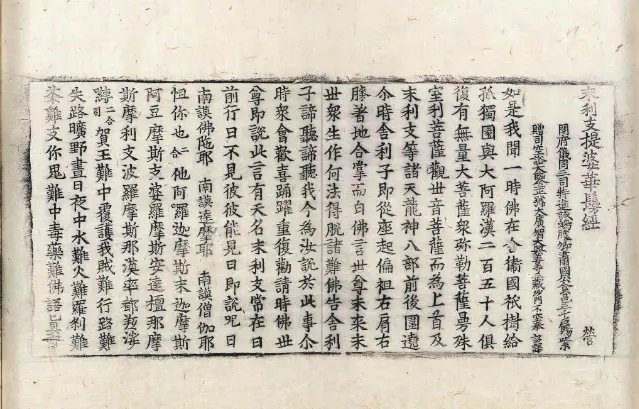 末利支提婆華鬘經 營
開府儀同三司特進試鴻臚卿肅國公食邑三千戶賜紫
贈司空謚大鑒正號大廣智大興善寺三藏沙門不空奉 詔譯
如是我聞一時佛在舍衛國祇樹給
孤獨園與大阿羅漢二百五十人俱
復有無量大菩薩衆弥勒菩薩曼殊
室利菩薩觀世音菩薩而為上首及
末利支等諸天龍神八部前後圍遶
今時舍利子即從座起偏袒右肩右
膝著地合掌而白佛言世尊未來末
世衆生作何法得脫諸難佛告舍利
子諦聽諦聽我今為汝說於此事尒
時衆會歡喜踊躍重復勸請時佛世
尊即說此言有天名末利支常在日
前行日不見彼彼能見日即說呪曰
南謨佛陁耶 南謨達摩耶 南謨僧伽耶
怛你也二合他阿羅迦摩斯末迦摩斯
阿豆摩斯支婆羅摩斯安達檀那摩
斯摩利支波羅摩斯那漠率都
二合引賀王難中覆護我賊難行路難
失路曠野晝日夜中水難火難羅刹難
難支你鬼難中毒藥難佛語